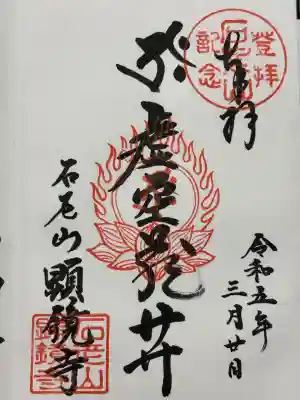 登拝
石老山
記念
奉拝
虚空蔵𦬇
石老山 顯鏡寺
令和五年
三月廿日